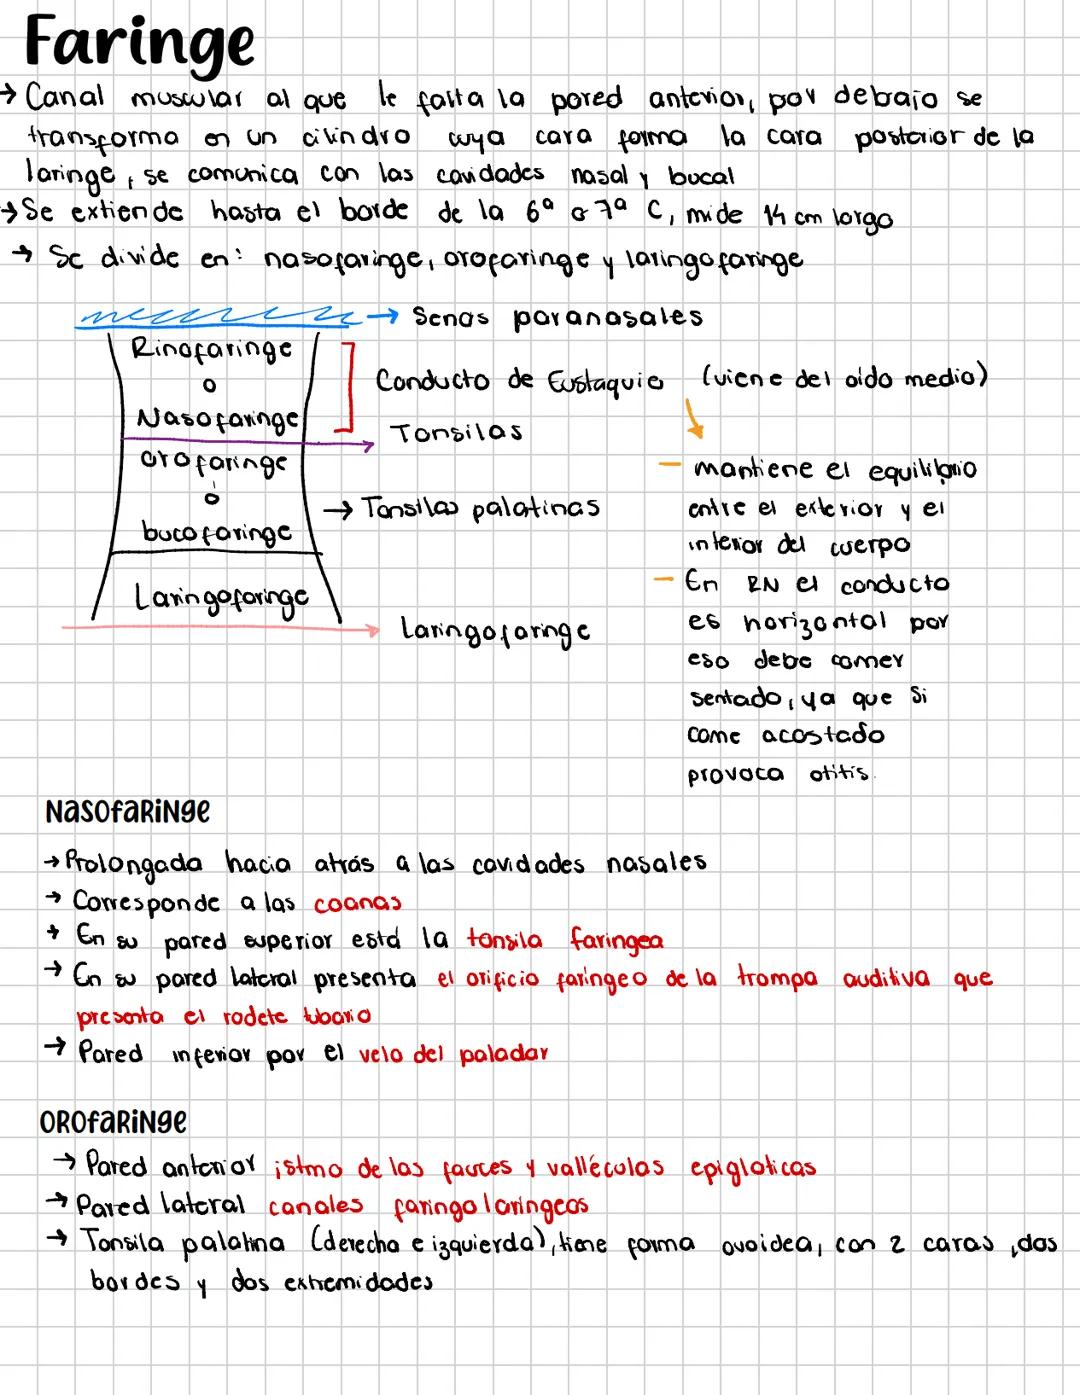 Faringe
→ Canal muscular al que le falta la pared anterior, por debajo se
transforma en un cilindro cuya cara forma la cara posterior de la
laringe, se comunica con las cavidades nasal y bucal
→ Se extiende hasta el borde de la 6ª o 7ª C, mide 14 cm largo
→ Se divide en: nasofaringe, orofaringe y laringofaringe
→ Senos paranasales
Rinofaringe
o
Nasofaringe
Conducto de Eustaquio (viene del oído medio)
Tonsilas
orofaringe
o
bucofaringe
→ Tonsilas palatinas
Laringofaringe
Laringofaringe
- mantiene el equilibrio
entre el exterior y el
interior del cuerpo
- En RN el conducto
es horizontal por
eso debe comer
sentado, ya que si
come acostado
provoca otitis.
NASOFARINGE
→ Prolongada hacia atrás a las cavidades nasales
→ Corresponde a las coanas
→ En su pared superior está la tonsila faringea
→ En su pared lateral presenta el orificio faríngeo de la trompa auditiva que
presenta el rodete tubario
→ Pared inferior por el velo del paladar
OROFARINGE
→ Pared anterior istmo de las fauces y valléculas epigloticas
→ Pared lateral canales faringolaringeos
→ Tonsila palatina (derecha e izquierda), tiene forma ovoidea, con 2 caras, dos
bordes y dos extremidades